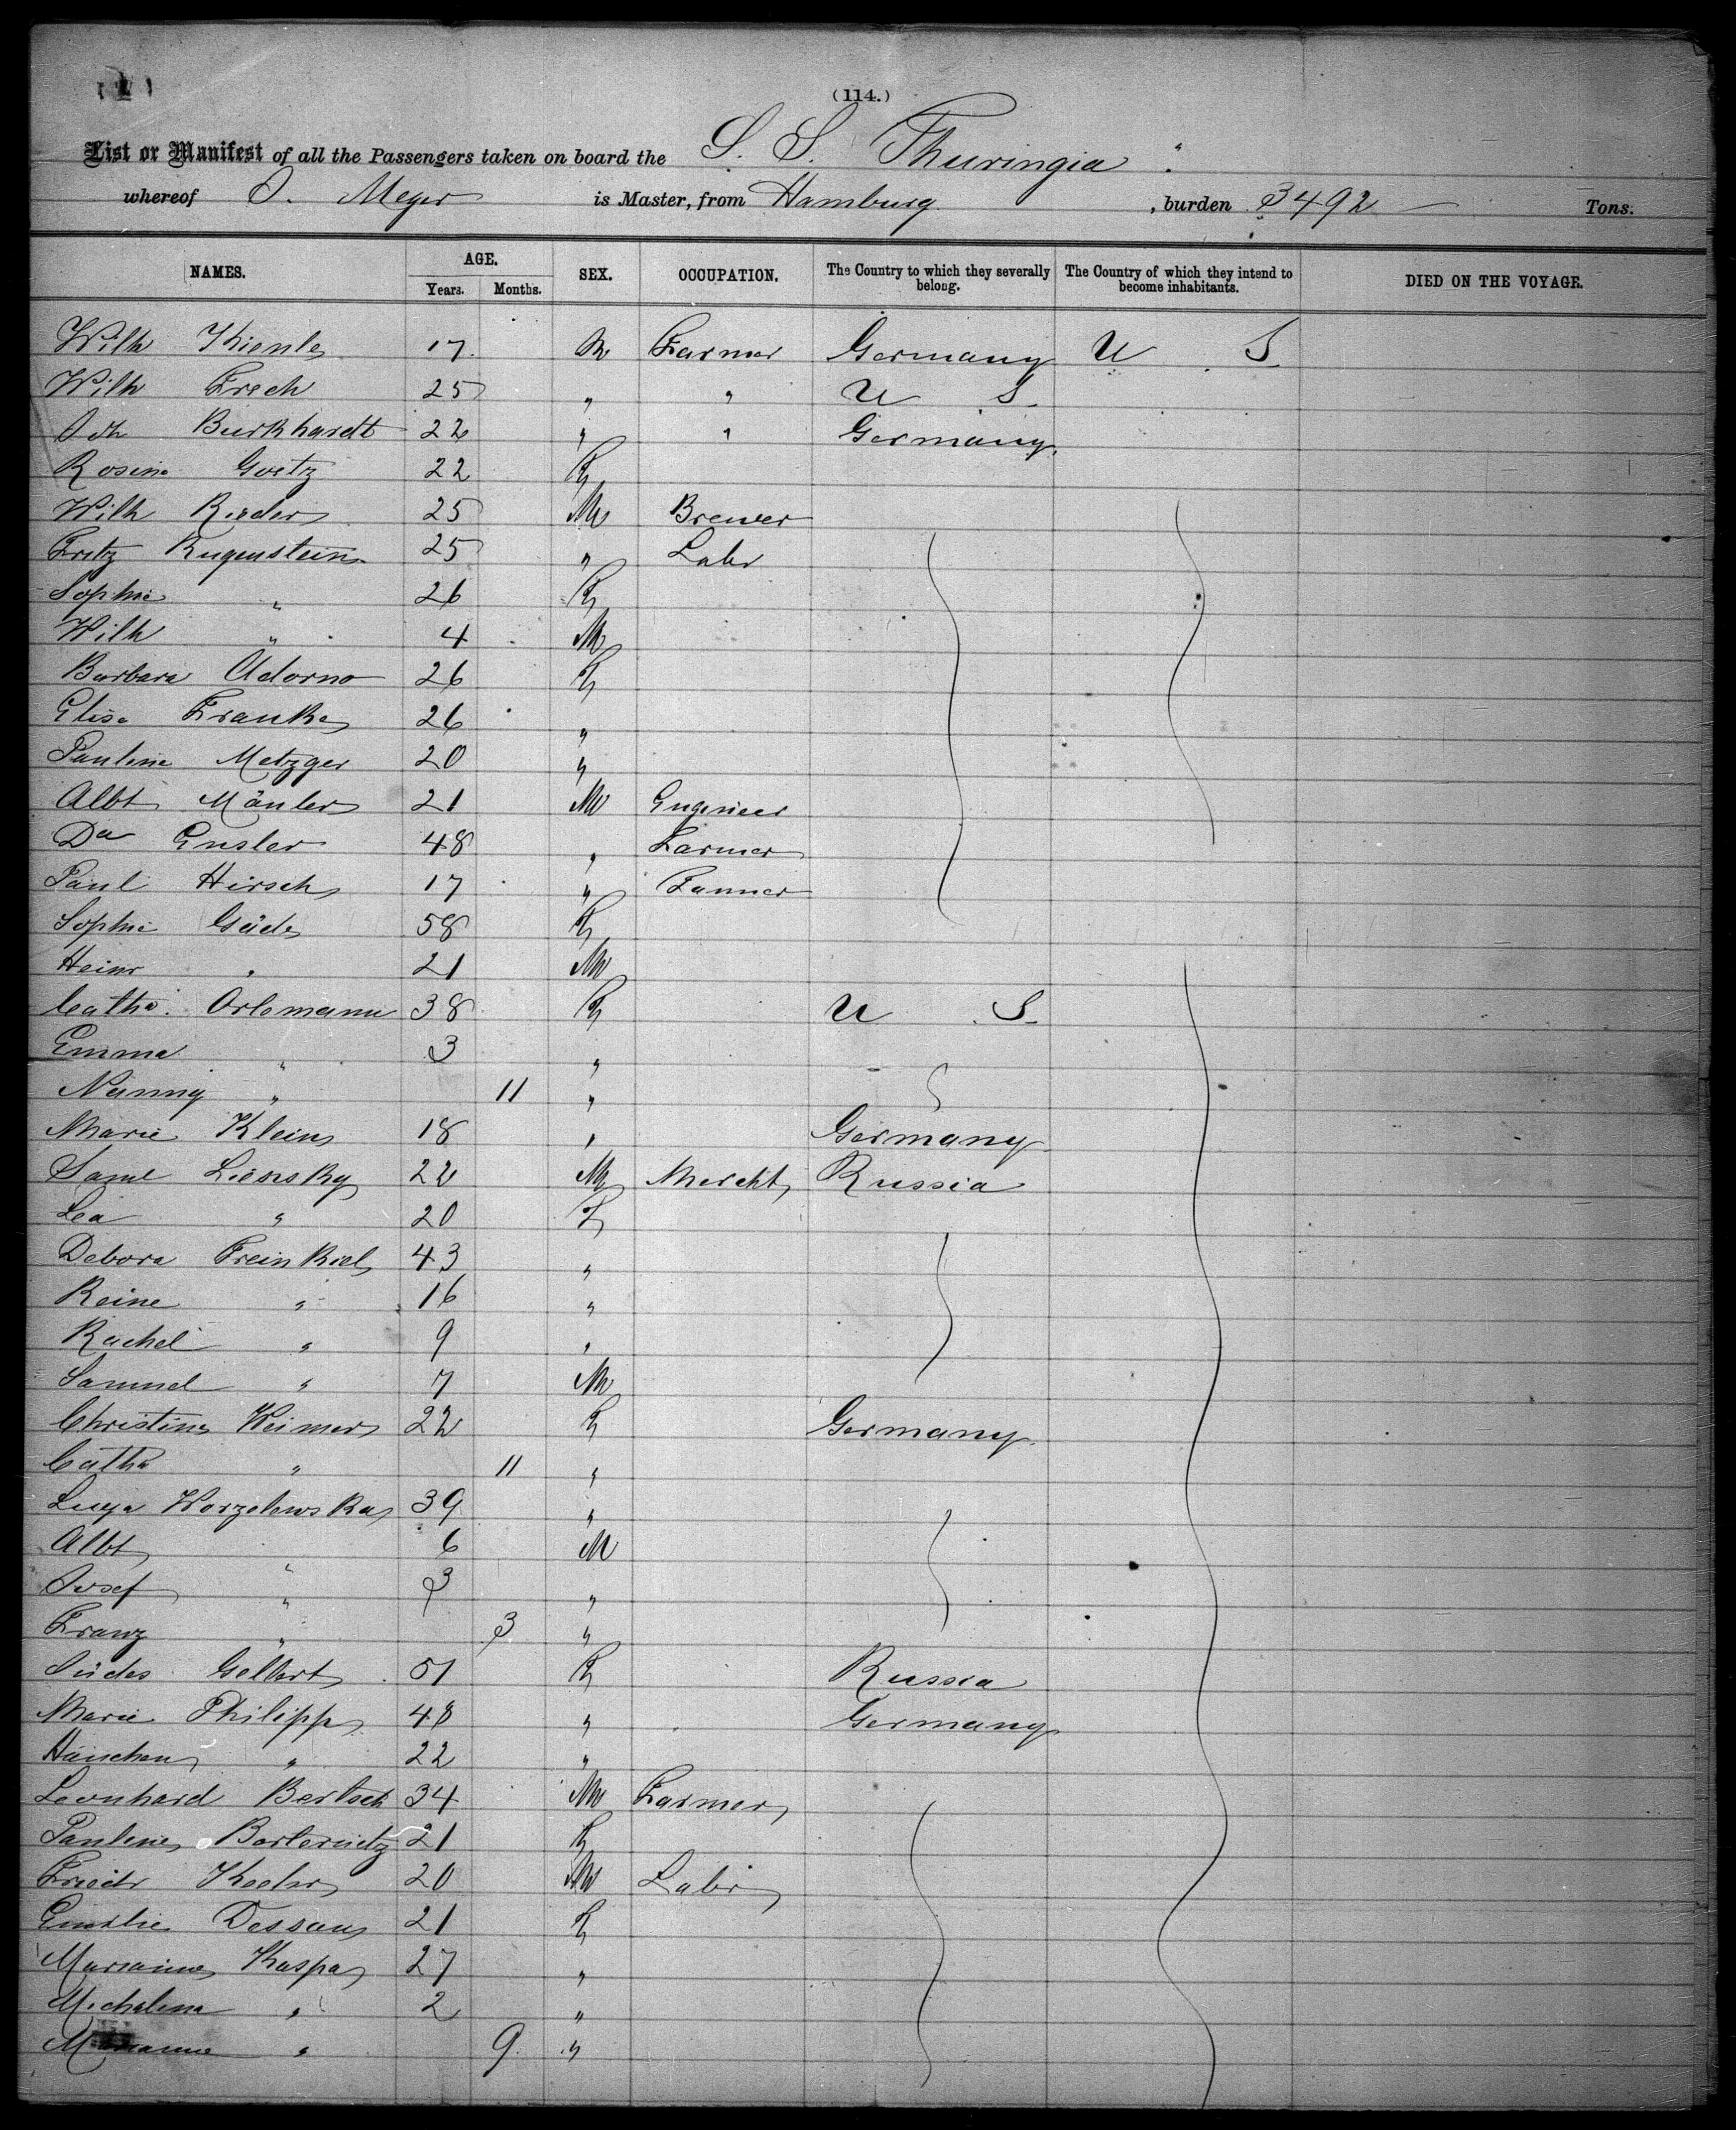 (114.)
List or Manifest of all the Passengers taken on board the S. S. Thuringia
whereof O. Meyer is Master, from Hamburg, burden 3492 Tons.
NAMES. AGE. SEX. OCCUPATION. The Country to which they severally belong. The Country of which they intend to become inhabitants. DIED ON THE VOYAGE.
Years. Months.
Wilh Kienle 17 M Farmer Germany U S
Wilh Frech 25 " " U S
Joh Burkhardt 22 " " Germany
Rosine Goetz 22 F
Wilh Rieder 25 M Brewer
Fritz Rugenstein 25 " Labr
Sophie " 26 F
Wilh " 4 M
Barbara Adorno 26 F
Elise Franke 26 "
Pauline Metzger 20 "
Albt Mänler 21 M Engineer
Da Ensler 48 " Farmer
Paul Hirsch 17 " Tanner
Sophie Gäde 58 F
Heinr " 21 M
Catha. Orlemann 38 F U S
Emma " 3 "
Nanny " 11 "
Marie Klein 18 " Germany
Saml Liensky 22 M Mercht Russia
Lea " 20 F
Debora Freinkiel 43 "
Reine " 16 "
Rachel " 9 "
Samuel " 7 M
Christine Weimer 22 F Germany
Catha " 11 "
Worzelewska 39 "
Albt " 6 M
Josef " 3 "
Franz " 3 "
Gellert 51 F Russia
Marie Philipp 48 " Germany
Hänchen " 22 "
Leonhard Bertsch 34 M Farmer
Pauline 21 F
Friedr Keeler 20 M Labr
Emilie Dessau 21 F
Marianne Kaspa 27 "
Michalina " 2 "
Marianne " 9 "